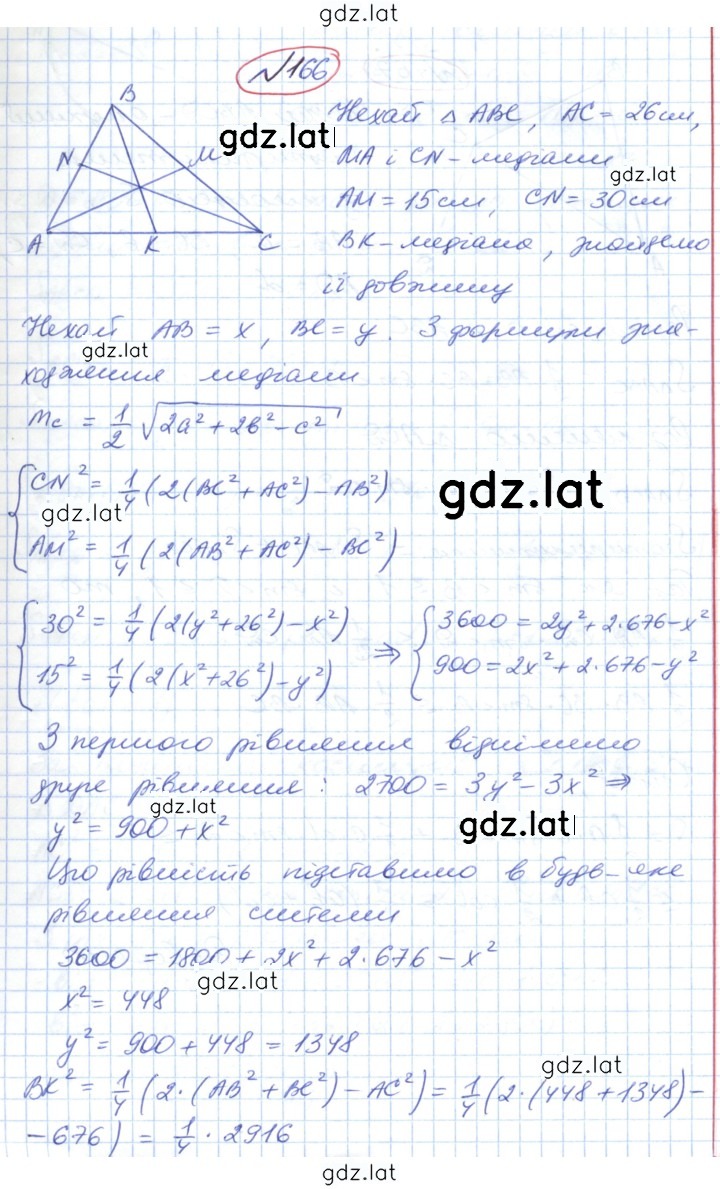 gdz.lat
№166
B
N
M
A
K
C
gdz.lat
Нехай △ ABC, AC = 26см,
MA і CN - медіани
gdz.lat
AM = 15см, CN = 30см
BK - медіана, знайдемо
її довжину
Нехай AB = x, BC = y. З формули зна-
gdz.lat
ходження медіани
mc = 1/2 √(2a² + 2b² - c²)
{ CN² = 1/4 (2(BC² + AC²) - AB²)
gdz.lat
gdz.lat
AM² = 1/4 (2(AB² + AC²) - BC²)
{ 30² = 1/4 (2(y² + 26²) - x²) ⇒ { 3600 = 2y² + 2·676 - x²
15² = 1/4 (2(x² + 26²) - y²) 900 = 2x² + 2·676 - y²
З першого рівняння віднімемо
друге рівняння: 2700 = 3y² - 3x² ⇒
gdz.lat
y² = 900 + x²
gdz.lat
Цю рівність підставимо в будь-яке
рівняння системи
3600 = 1800 + 2x² + 2·676 - x²
gdz.lat
x² = 448
y² = 900 + 448 = 1348
gdz.lat
BK² = 1/4 (2·(AB² + BC²) - AC²) = 1/4 (2·(448 + 1348) -
- 676) = 1/4 · 2916
gdz.lat